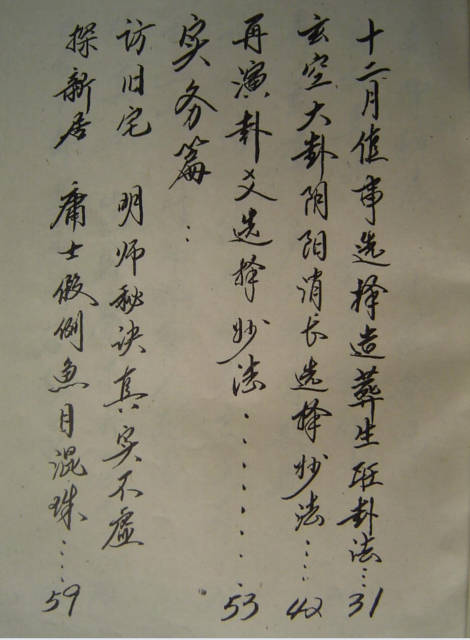 十二月值事选择造葬生旺卦法…31
玄空大卦阴阳消长选择妙法……42
再演卦爻选择妙法........53
实务篇：
访旧宅 明师秘诀真实不虚
探新居 庸士假例鱼目混珠……59